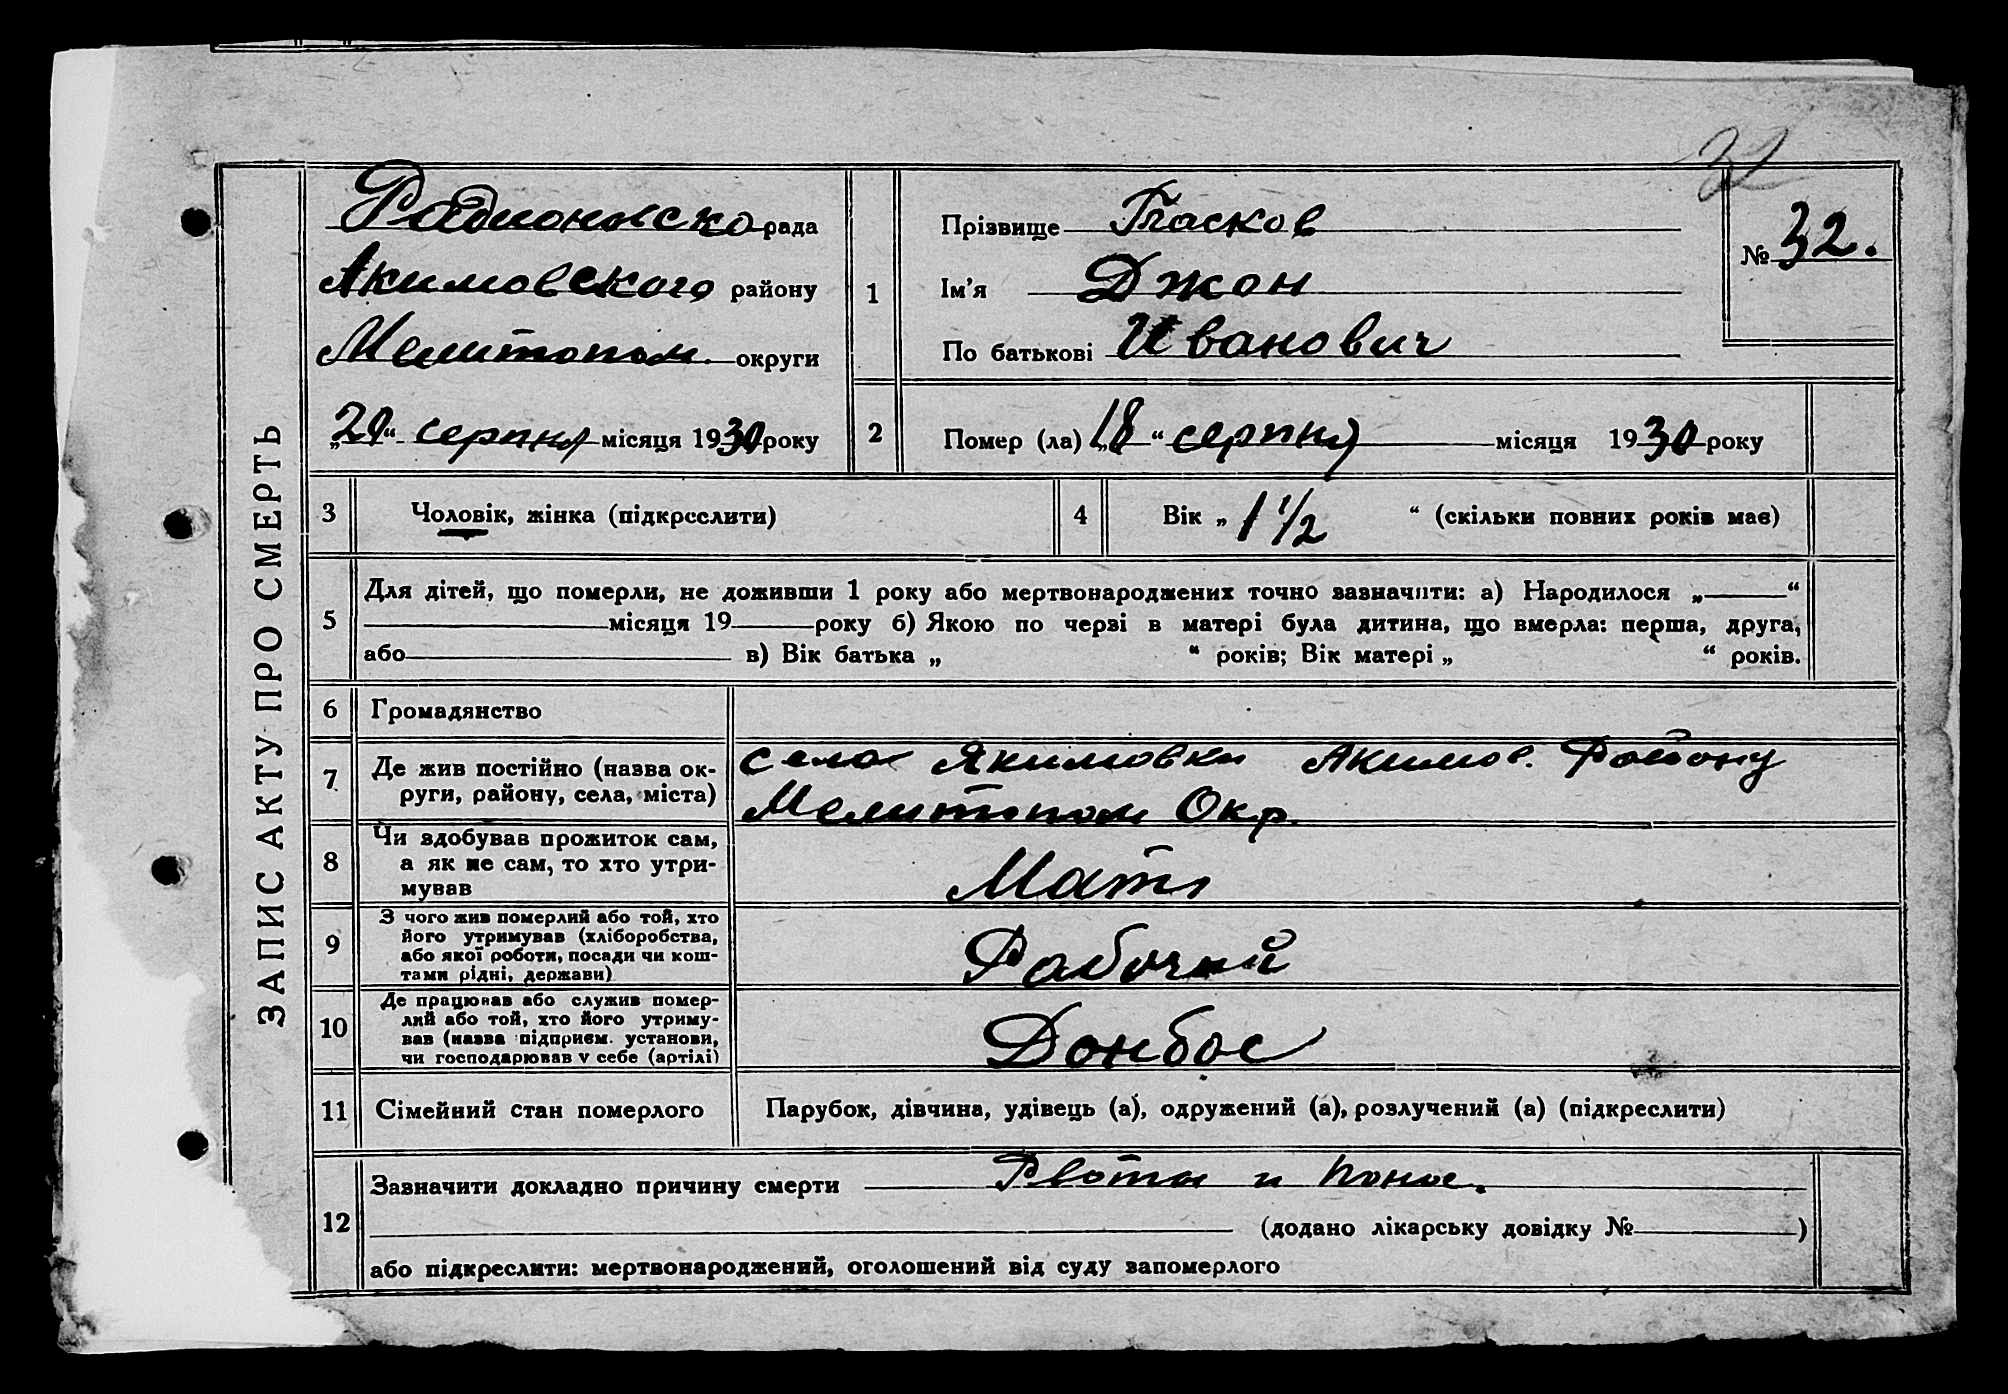 32
ЗАПИС АКТУ ПРО СМЕРТЬ
Радионовско рада
Акимовского району
Мелитопол. округи
„20“ серпня місяця 1930 року
1
Прізвище Пасков
Ім’я Джон
По батькові Иванович
№ 32.
2
Помер (ла) „18“ серпня місяця 1930 року
3 Чоловік, жінка (підкреслити)
4 Вік „1 1/2“ (скільки повних років має)
5
Для дітей, що померли, не доживши 1 року або мертвонароджених точно зазначити: а) Народилося „ “
місяця 19 року б) Якою по черзі в матері була дитина, що вмерла: перша, друга,
або в) Вік батька „ “ років; Вік матері „ “ років.
6 Громадянство
7 Де жив постійно (назва ок-
руги, району, села, міста)
село Якимовки Акимов. Району
Мелитопол Окр.
8 Чи здобував прожиток сам,
а як не сам, то хто утри-
мував
Мати
9 З чого жив померлий або той, хто
його утримував (хліборобства,
або якої роботи, посади чи кош-
тами рідні, держави)
Рабочий
10 Де працював або служив помер-
лий або той, хто його утриму-
вав (назва підприєм. установи,
чи господарював у себе (артілі)
Донбас
11 Сімейний стан померлого
Парубок, дівчина, удівець (а), одружений (а), розлучений (а) (підкреслити)
12
Зазначити докладно причину смерти Рвота и понос.
(додано лікарську довідку № )
або підкреслити: мертвонароджений, оголошений від суду запомерлого